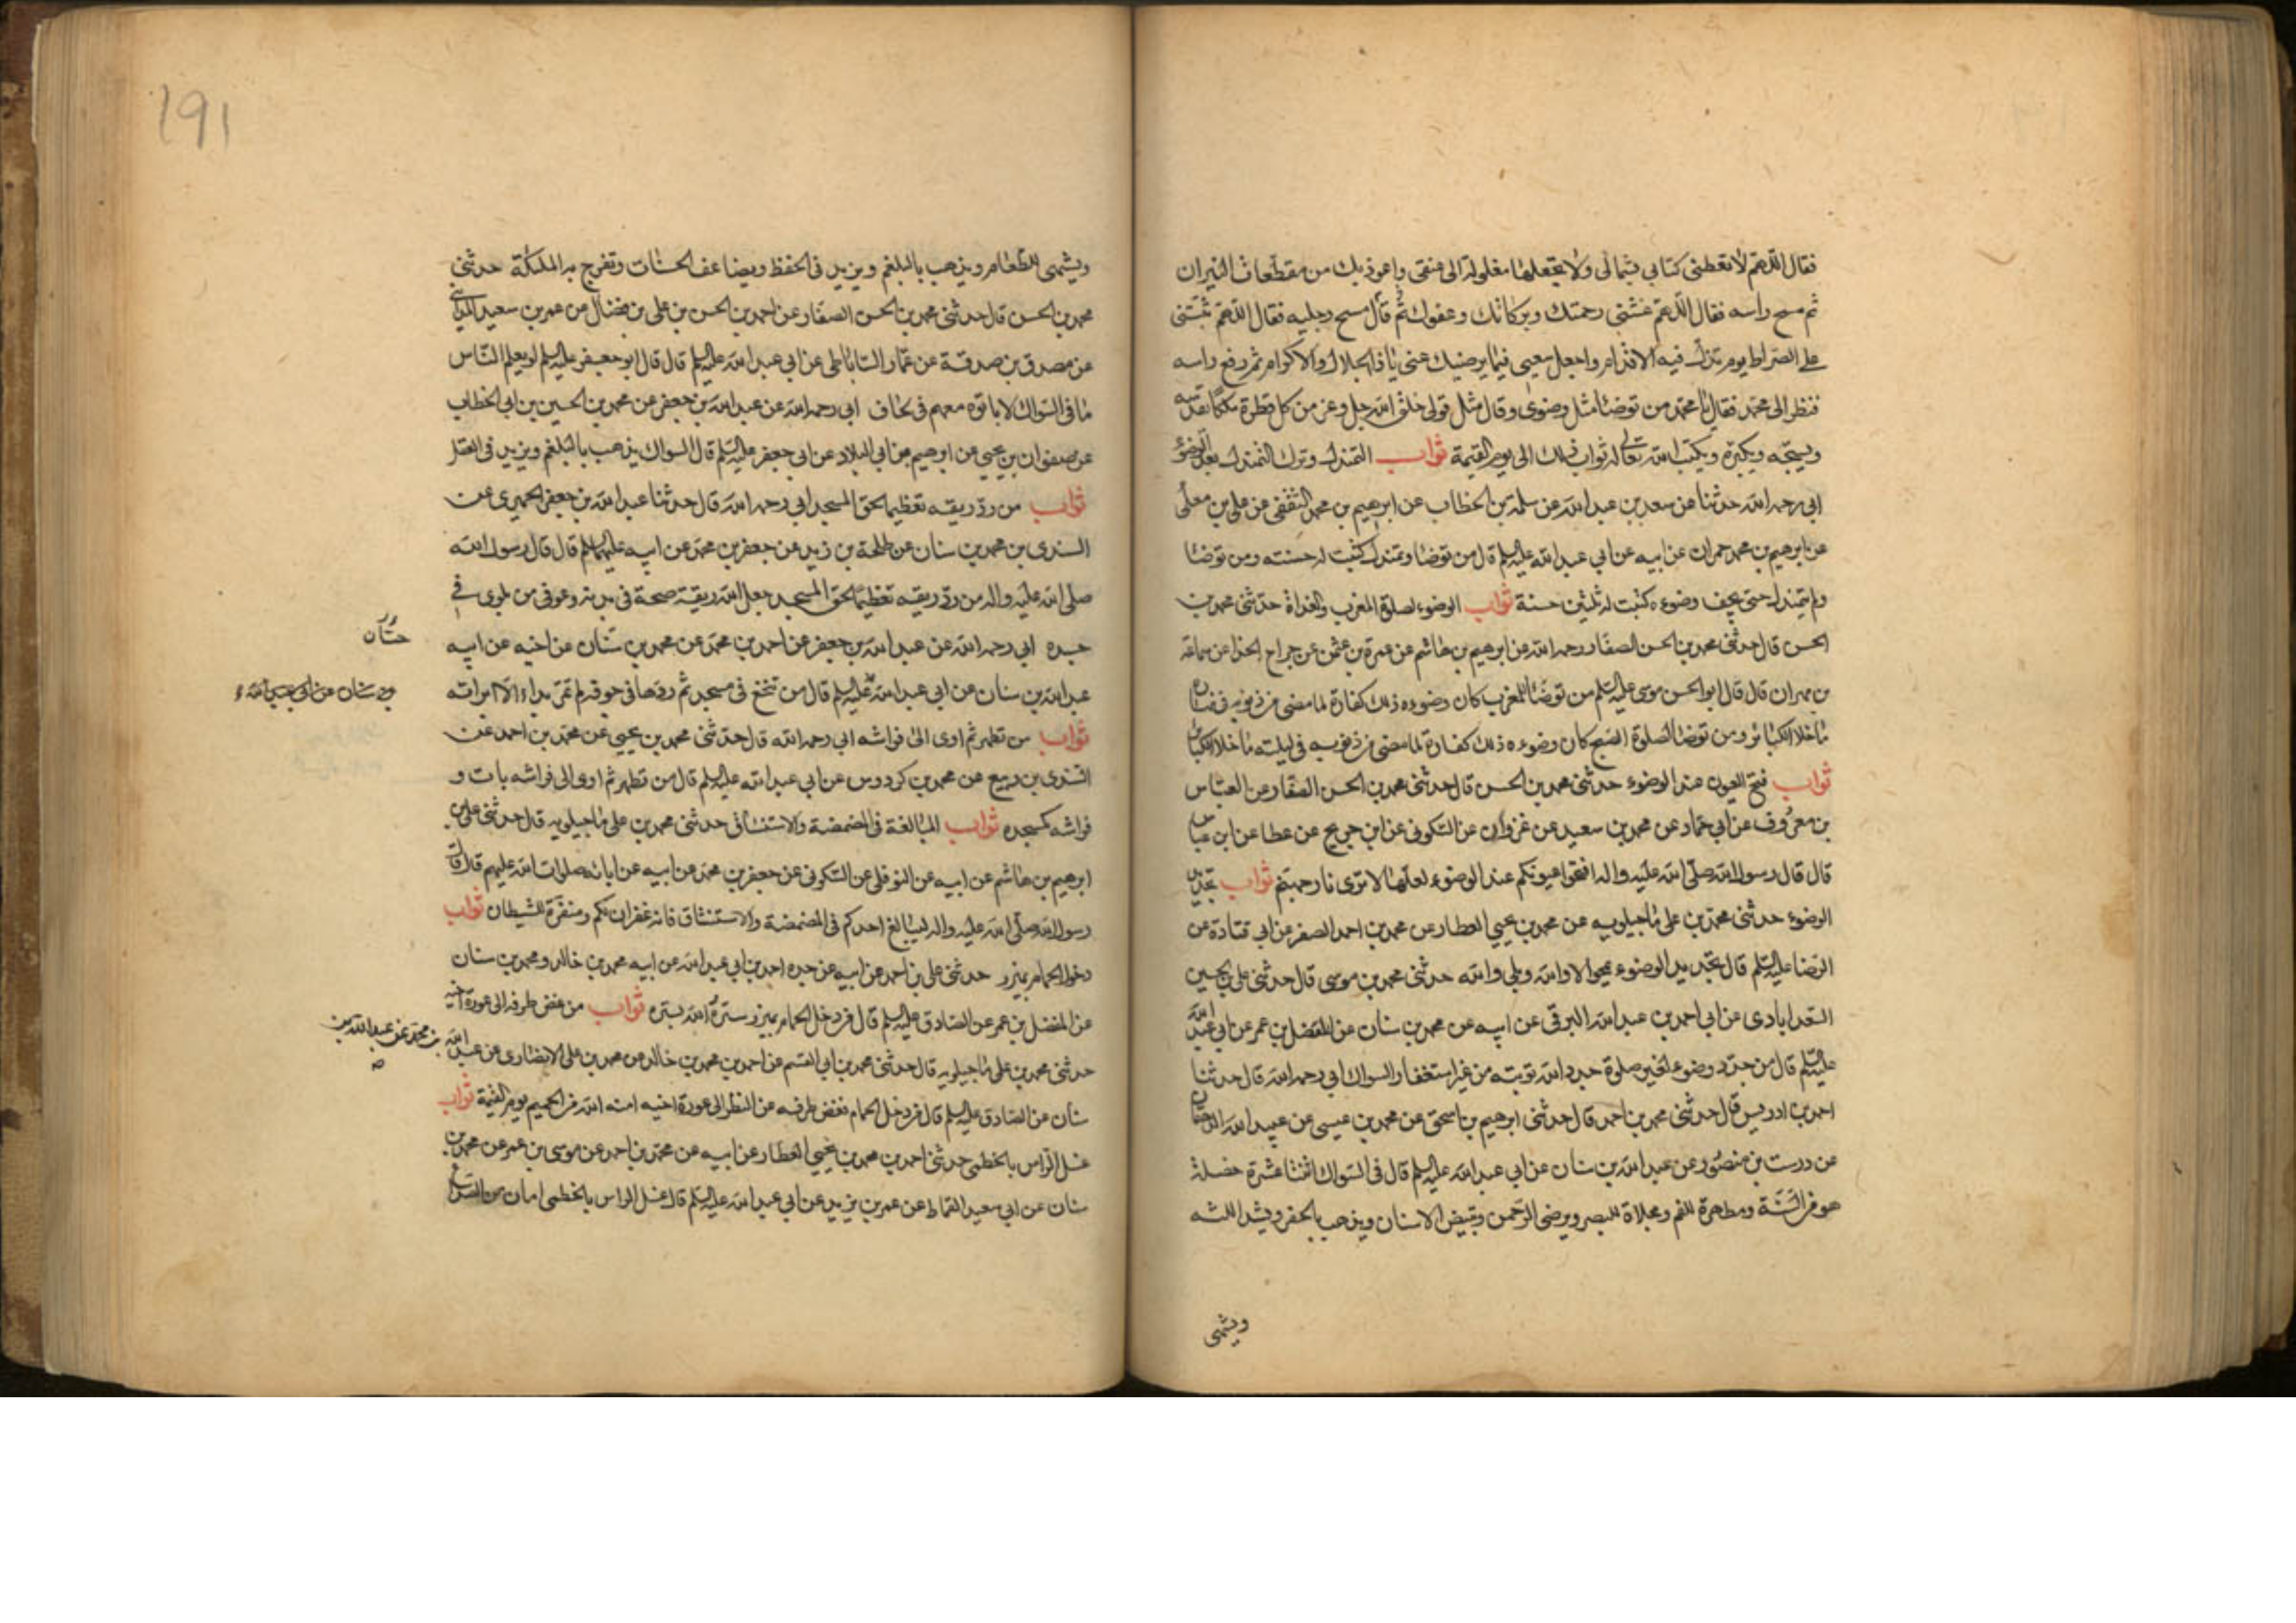 فقال اللّهمّ لا تعطني كتابي بشمالي ولا تجعلها مغلولة الى عنقي واعوذ بك من مقطعات النيران
ثم مسح راسه فقال اللّهمّ غشّني رحمتك وبركاتك وعفوك ثم قال مسح رجليه فقال اللّهمّ ثبّتني
على الصراط يوم تزلّ فيه الاقدام واجعل سعيى فيما يرضيك عني يا ذا الجلال والاكرام ثم رفع راسه
فنظر الى محمّد فقال يا محمّد من توضّا مثل وضوئى وقال مثل قولى خلق الله جل وعز من كل قطرة ملكا يقدّسه
ويسبّحه ويكبّره ويكتب الله تعالى له ثواب ذلك الى يوم القيمة ثواب التمندل وترك التمندل بعد الوضوء
ابي رحمه الله حدثنا عن سعد بن عبد الله عن سلمة بن الخطاب عن ابرهيم بن محمد الثقفى عن على بن معلّى
عن ابرهيم بن محمد حمران عن ابيه عن ابي عبد الله عليه السلم قال من توضا وتمندل كتبت له حسنته ومن توضا
ولم يتمندل حتى يجف وضوءه كتبت له ثلثين حسنة ثواب الوضوء لصلوة المغرب والغداة حدّثنى محمد بن
الحسن قال حدثنى محمد بن الحسن الصفار رحمه الله عن ابرهيم بن هاشم عن عمرة بن عثمن عن جراح الحذا عن سماعة
بن مهران قال قال ابو الحسن موسى عليه السّلم من توضّا للمغرب كان وضوءه ذلك كفارة لما مضى من ذنوبه في نهاره
ما خلا الكبائر ومن توضا لصلوة الصّبح كان وضوءه ذلك كفارة لما مضى من ذنوبه فى ليلته ما خلا الكبائر
ثواب فتح العيون عند الوضوء حدثنى محمد بن الحسن قال حدثنى محمد بن الحسن الصفّار عن العبّاس
بن معروف عن ابي حماد عن محمد بن سعيد عن غزوان عن السّكونى عن ابن جريج عن عطا عن ابن عباس
قال قال رسول الله صلّى الله عليه واله افتحوا عيونكم عند الوضوء لعلّها لا ترى نار جهنم ثواب تجديد
الوضوء حدثنى محمّد بن على ماجيلويه عن محمد بن يحيى العطار عن محمد بن احمد الصفر عن ابي قتادة عن
الرّضا عليه السّلم قال تجديد الوضوء يمحو لا والله وبلى والله حدثنى محمد بن موسى قال حدثنى على بن الحسين
السّعدابادى عن ابي احمد بن عبد الله البرقى عن ابيه عن محمد بن سنان عن المفضل بن عمر عن ابي عبد الله
عليه السّلم قال من جدّد وضوءه لغير صلوة جدد الله توبته من غير استغفار والسواك ابي رحمه الله قال حدثنا
احمد بن ادريس قال حدثنى محمد بن احمد قال حدثنى ابرهيم بن اسحق عن محمد بن عيسى عن عبيد الله الدهقان
عن درست بن منصور عن عبد الله بن سنان عن ابي عبد الله عليه السلم قال فى السّواك اثنتا عشرة خصلة
هو من السّنّة ومطهرة للفم ومجلاة للبصر ويرضى الرّحمن ويبيض الاسنان ويذهب بالحفر ويشد اللثه
ويشهى
191
ويشهى الطّعام ويذهب بالبلغم ويزيد فى الحفظ ويضاعف الحسنات وتفرح به الملئكة حدثنى
محمد بن الحسن قال حدثنى محمد بن الحسن الصفار عن احمد بن الحسن بن على بن فضال عن عمر بن سعيد المدائنى
عن مصدق بن صدقة عن عمّار السّاباطى عن ابى عبد الله عليه السلم قال قال ابو جعفر عليه السلم لو يعلم النّاس
ما فى السّواك لاباتوه معهم فى لحاف ابى رحمه الله عن عبد الله بن جعفر عن محمد بن الحسين بن ابى الخطاب
عن صفوان بن يحيى عن ابرهيم عن ابى البلاد عن ابى جعفر عليه السّلم قال السواك يذهب بالبلغم ويزيد فى العقل
ثواب من ردّ ريقه تعظيما لحق المسجد ابي رحمه الله قال حدثنا عبد الله بن جعفر الحميرى عن
السندى بن محمد بن سنان عن طلحة بن زيد عن جعفر بن محمّد عن ابيه عليهما السلم قال قال رسول الله
صلى الله عليه واله من ردّ ريقه تعظيما لحق المسجد جعل الله ريقه صحة فى بدنه وعوفى من بلوى فى
جسده ابى رحمه الله عن عبد الله بن جعفر عن احمد بن محمّد عن محمد بن سنان عن اخيه عن ابيه
حسّان
عبد الله بن سنان عن ابى عبد الله عليه السلم قال من تنخع فى مسجد ثم ردّها فى جوفه لم تمرّ بداء الا ابراته
بن سنان عن ابى عبد الله ع
ثواب من تطهر ثم اوى الى فراشه ابى رحمه الله قال حدّثنى محمد بن يحيى عن محمّد بن احمد عن
السّندى بن ربيع عن محمد بن كردوس عن ابى عبد الله عليه السلم قال من تطهر ثم اوى الى فراشه بات و
فراشه كمسجده ثواب المبالغة فى المضمضة والاستنشاق حدثنى محمد بن على ماجيلويه قال حدثنى على بن
ابرهيم بن هاشم عن ابيه عن النوفلى عن السّكونى عن جعفر بن محمّد عن ابيه عن ابائه صلوات الله عليهم قال قال
رسول الله صلّى الله عليه واله ليبالغ احدكم فى المضمضة والاستنشاق فانه غفران لكم ومنفّرة للشيطان ثواب
دخول الحمام بميزر حدثنى على بن احمد عن ابيه عن جده احمد بن ابى عبد الله عن ابيه محمد بن خالد ومحمد بن سنان
عن المفضل بن عمر عن الصادق عليه السلم قال من دخل الحمام بميزر ستره الله بستره ثواب من غض طرفه الى عورة اخيه
حدثنى محمد بن على ماجيلويه قال حدثنى محمد بن ابى القسم عن احمد بن محمد بن خالد عن محمد بن على الانصارى عن عبد الله
بن محمّد عن عبد الله بن
سنان عن الصادق عليه السلم قال من دخل الحمام فغض طرفه عن النظر الى عورة اخيه امنه الله من الحميم يوم القيمة ثواب
غسل الراس بالخطمى حدثنى احمد بن محمد بن يحيى العطار عن ابيه عن محمّد بن احمد عن موسى بن عمر عن محمد بن
سنان عن ابى سعيد القماط عن عمر بن يزيد عن ابى عبد الله عليه السّلم قال غسل الراس بالخطمى امان من الصداع